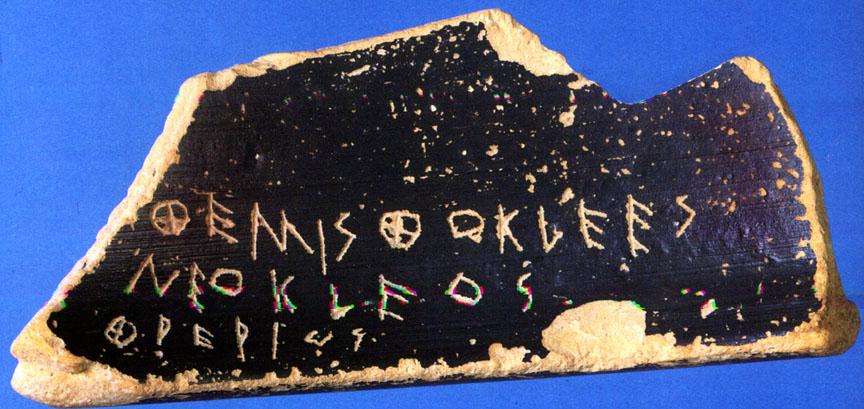 ΘΕΜΙΣΘΟΚΛΕΕΣ
ΝΕΟΚΛΕΟΣ
ΦΡΕΡΙΟΣ